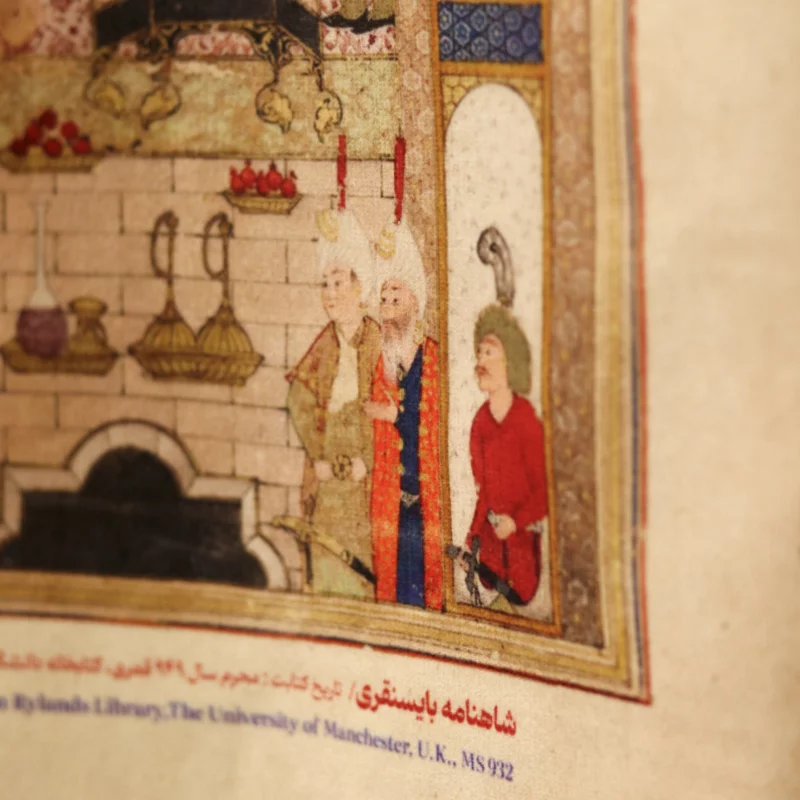 شاهنامه بایسنقری/ تاریخ کتابت : محرم سال ۹۴۹ قمری، کتابخانه
Rylands Library,The University of Manchester, U.K., MS 932